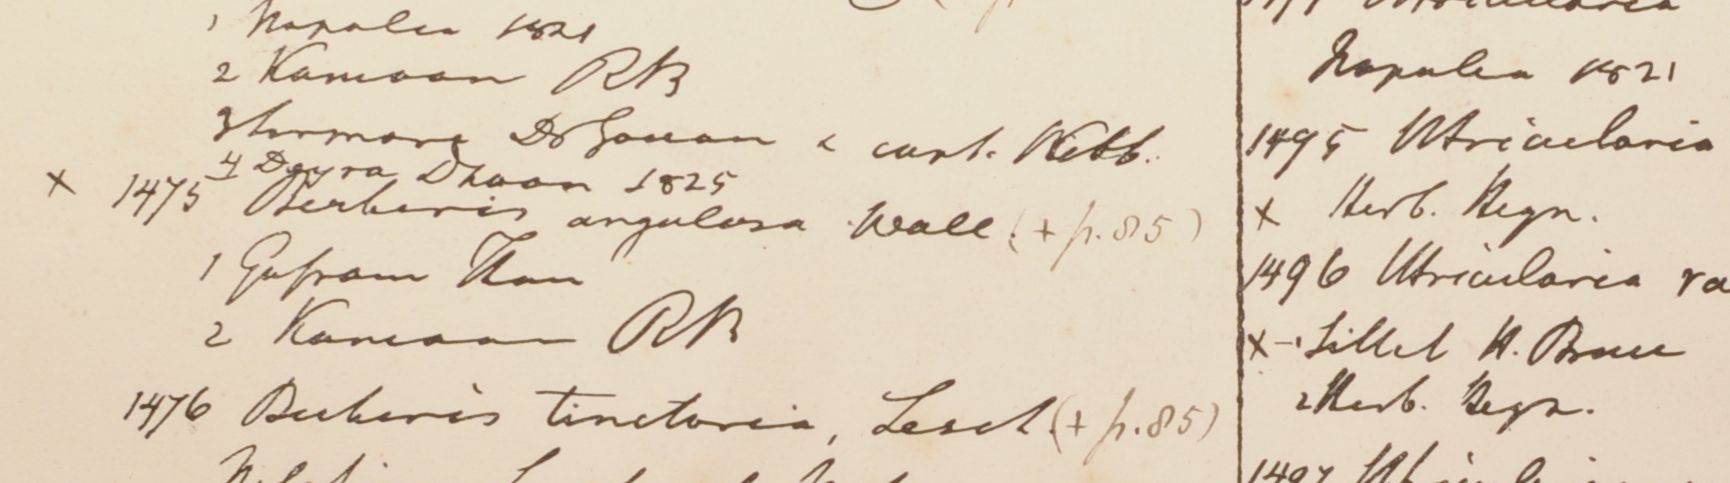 1 Napalia 1821
2 Kamaon RB
3 Sirmore Dr Govan & cart. Webb.
4 Deyra Dhoon 1825
x 1475 Berberis angulosa Wall (+ p. 85)
1 Gosain Than
2 Kamaon RB
1476 Berberis tinctoria, Lesch (+ p. 85)
Utricularia
Napalia 1821
1495 Utricularia
x Herb. Heyn.
1496 Utricularia ra
x - 1 Sillet H. Bruce
2 Herb. Heyn.
1497